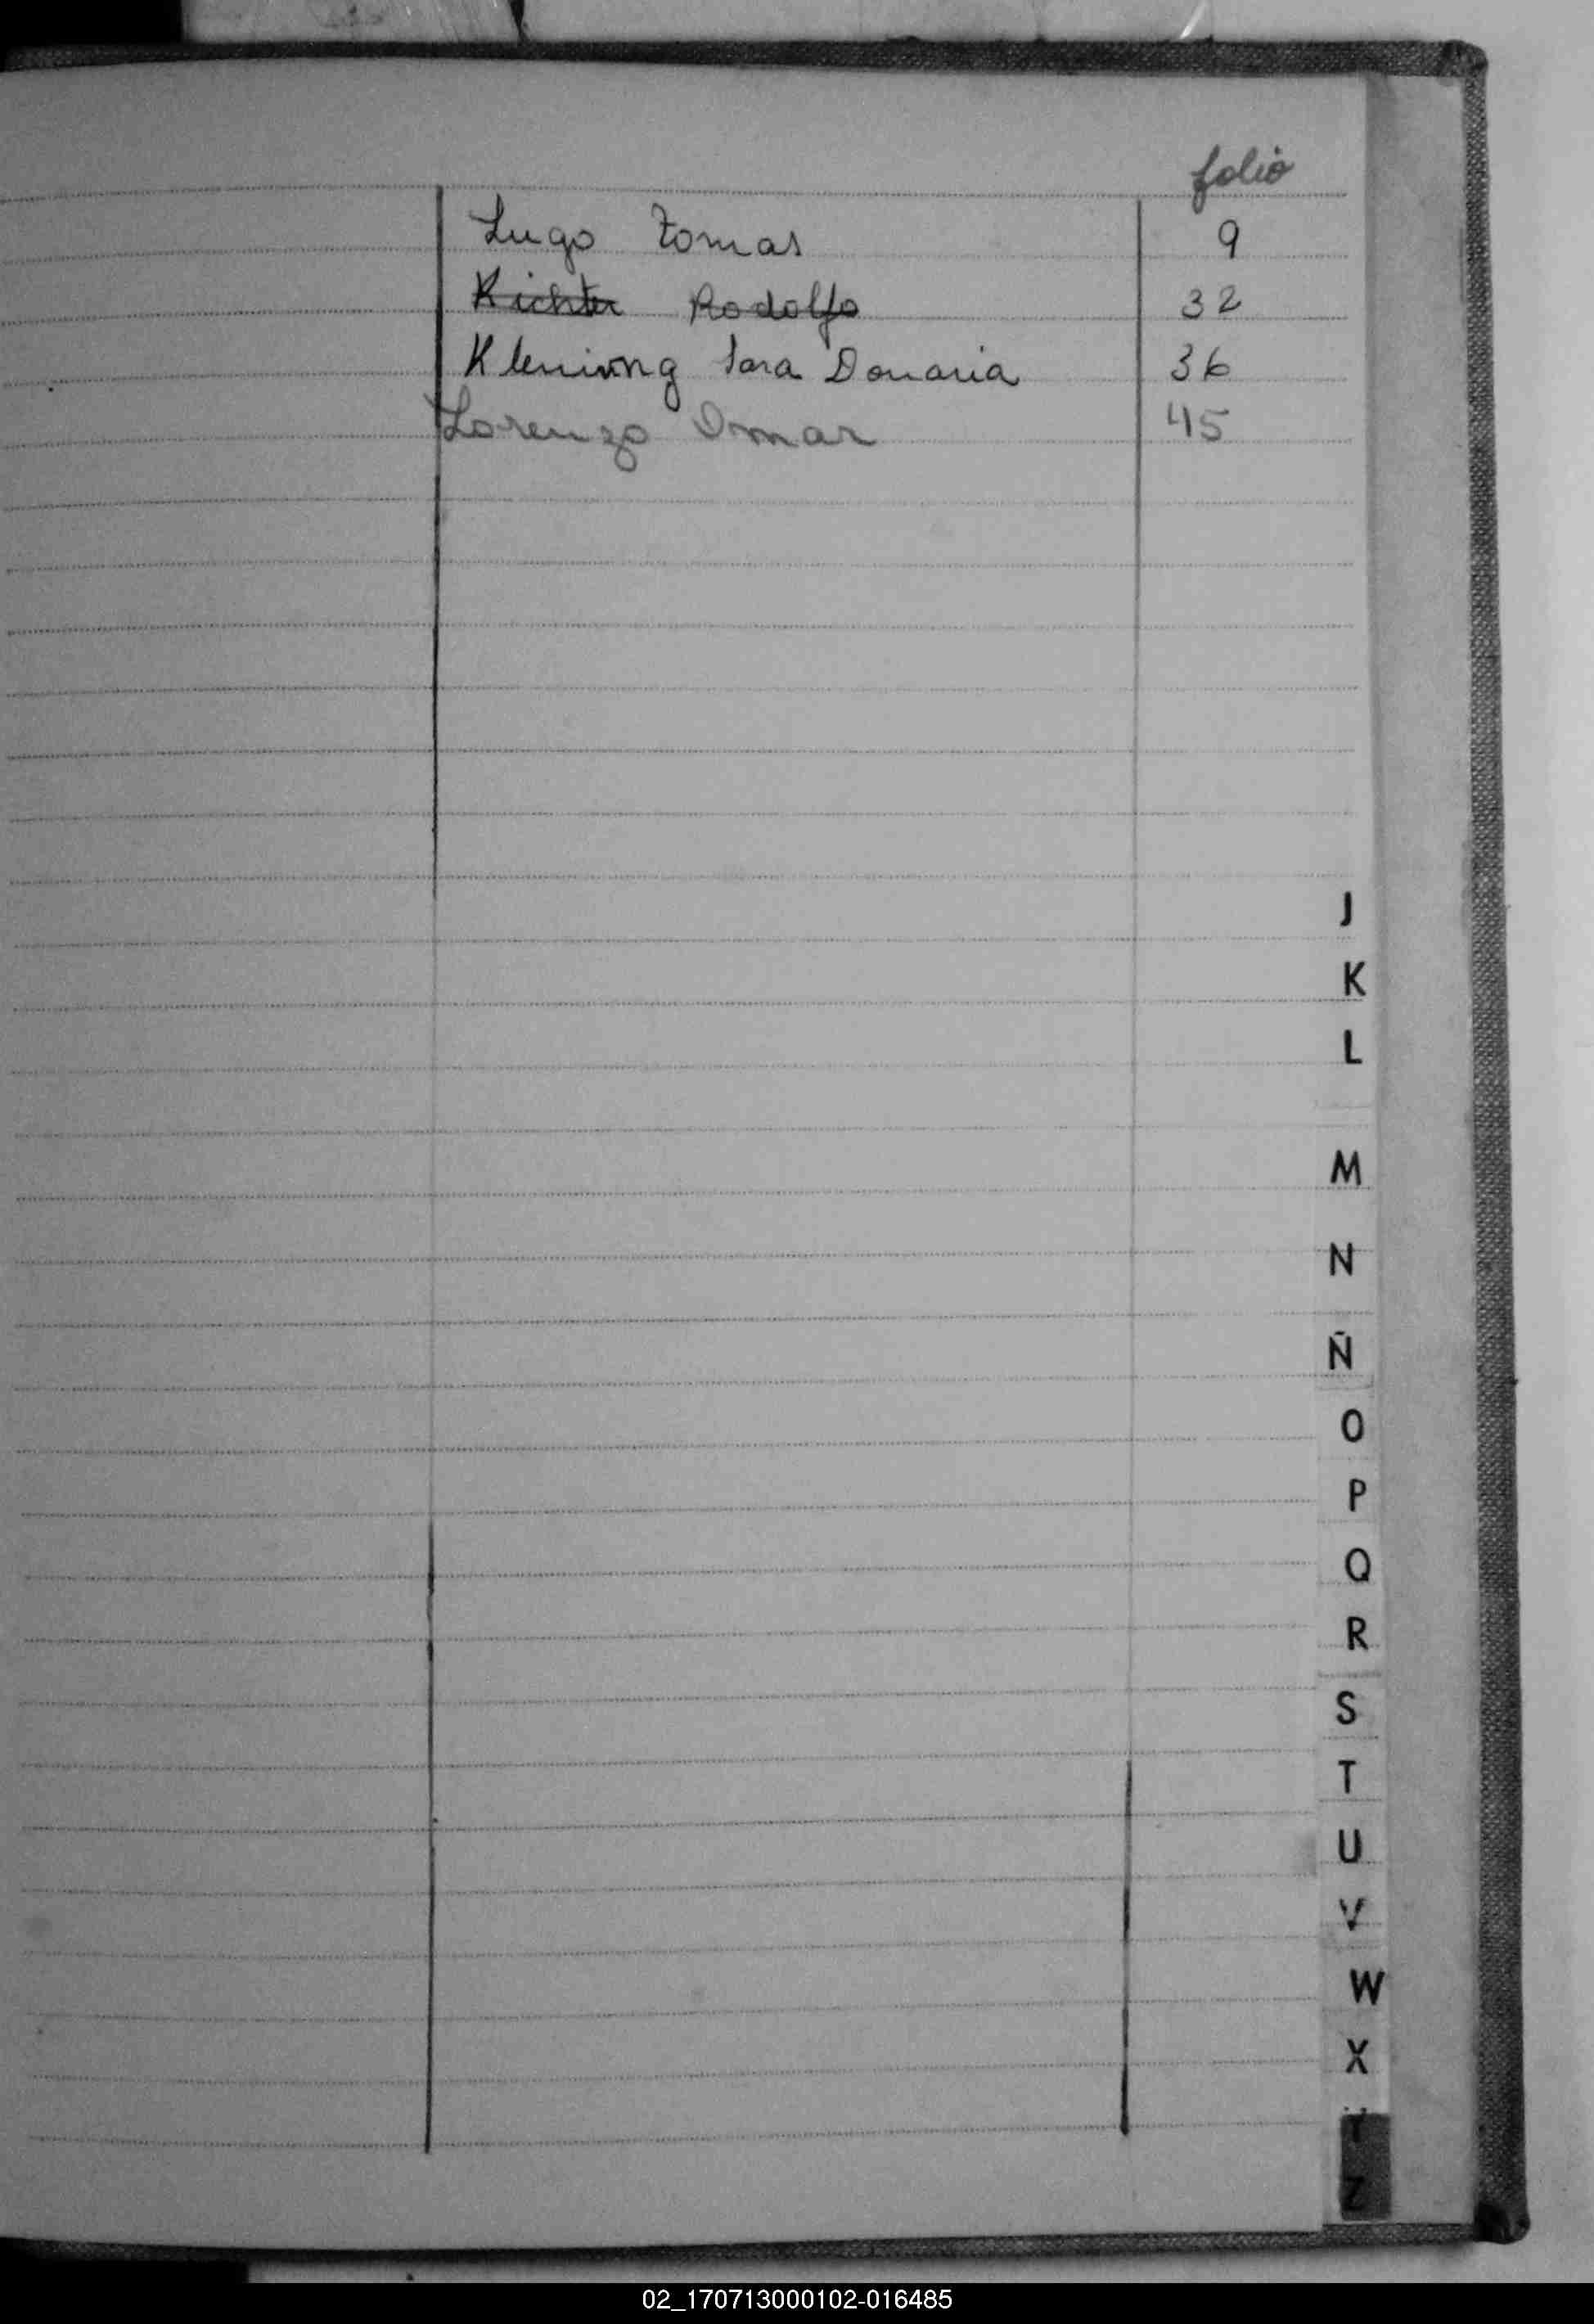 folio
Lugo Tomas 9
Kichter Rodolfo 32
Kleniung Sara Donaria 36
Lorenzo Omar 45
J
K
L
M
N
Ñ
O
P
Q
R
S
T
U
V
W
X
Y
Z
02_170713000102-016485